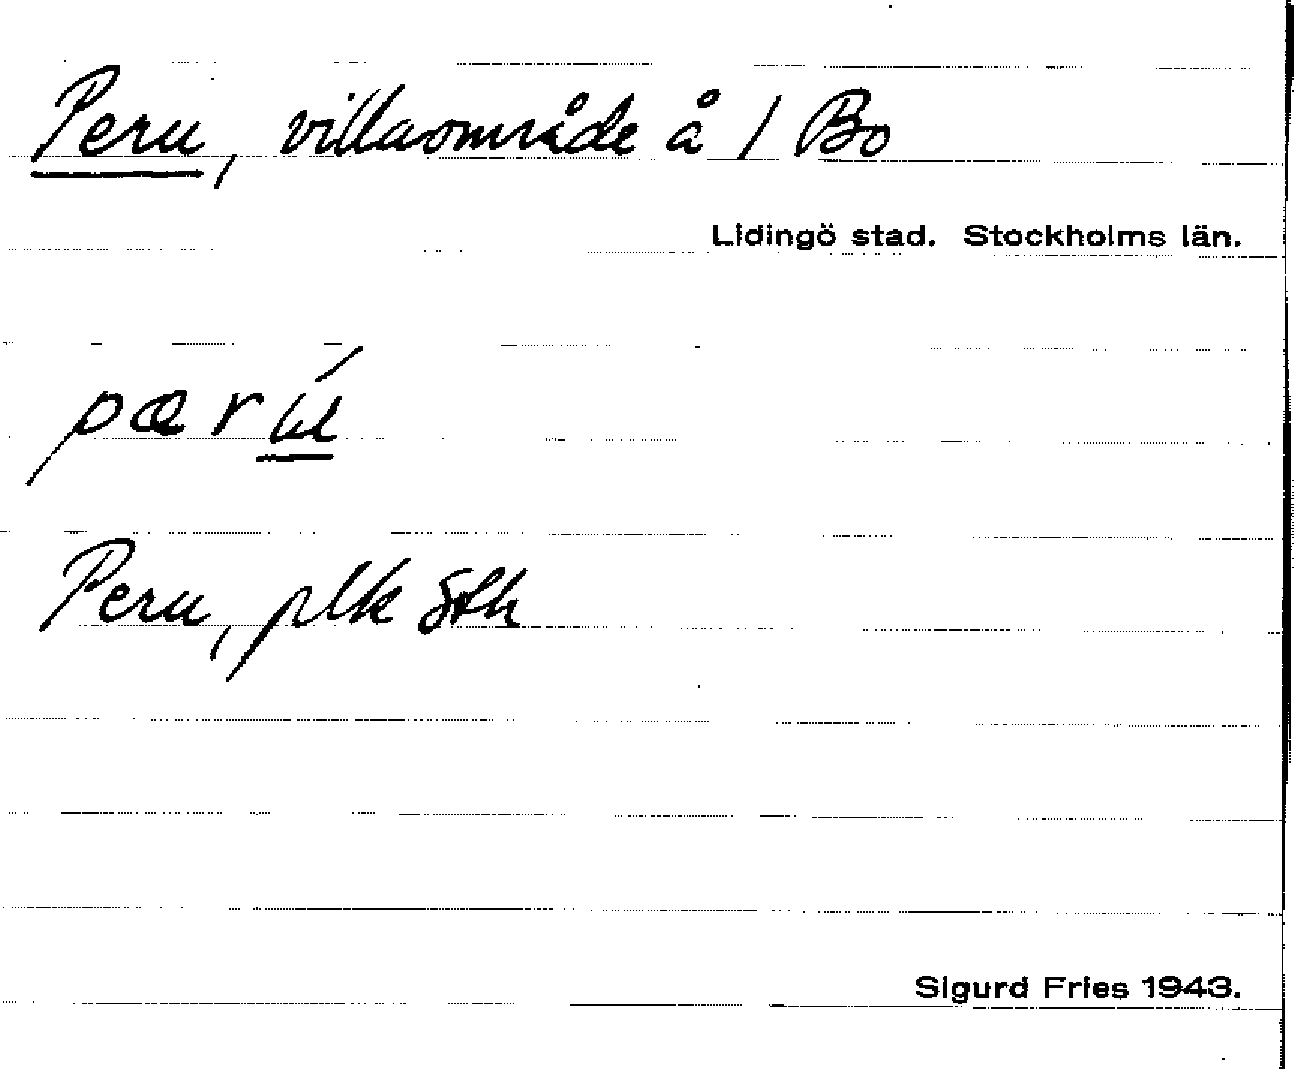 Peru, villaområde å 1 Bo
Lidingö stad. Stockholms län.
pærú
Peru, plk Sth
Sigurd Fries 1943.